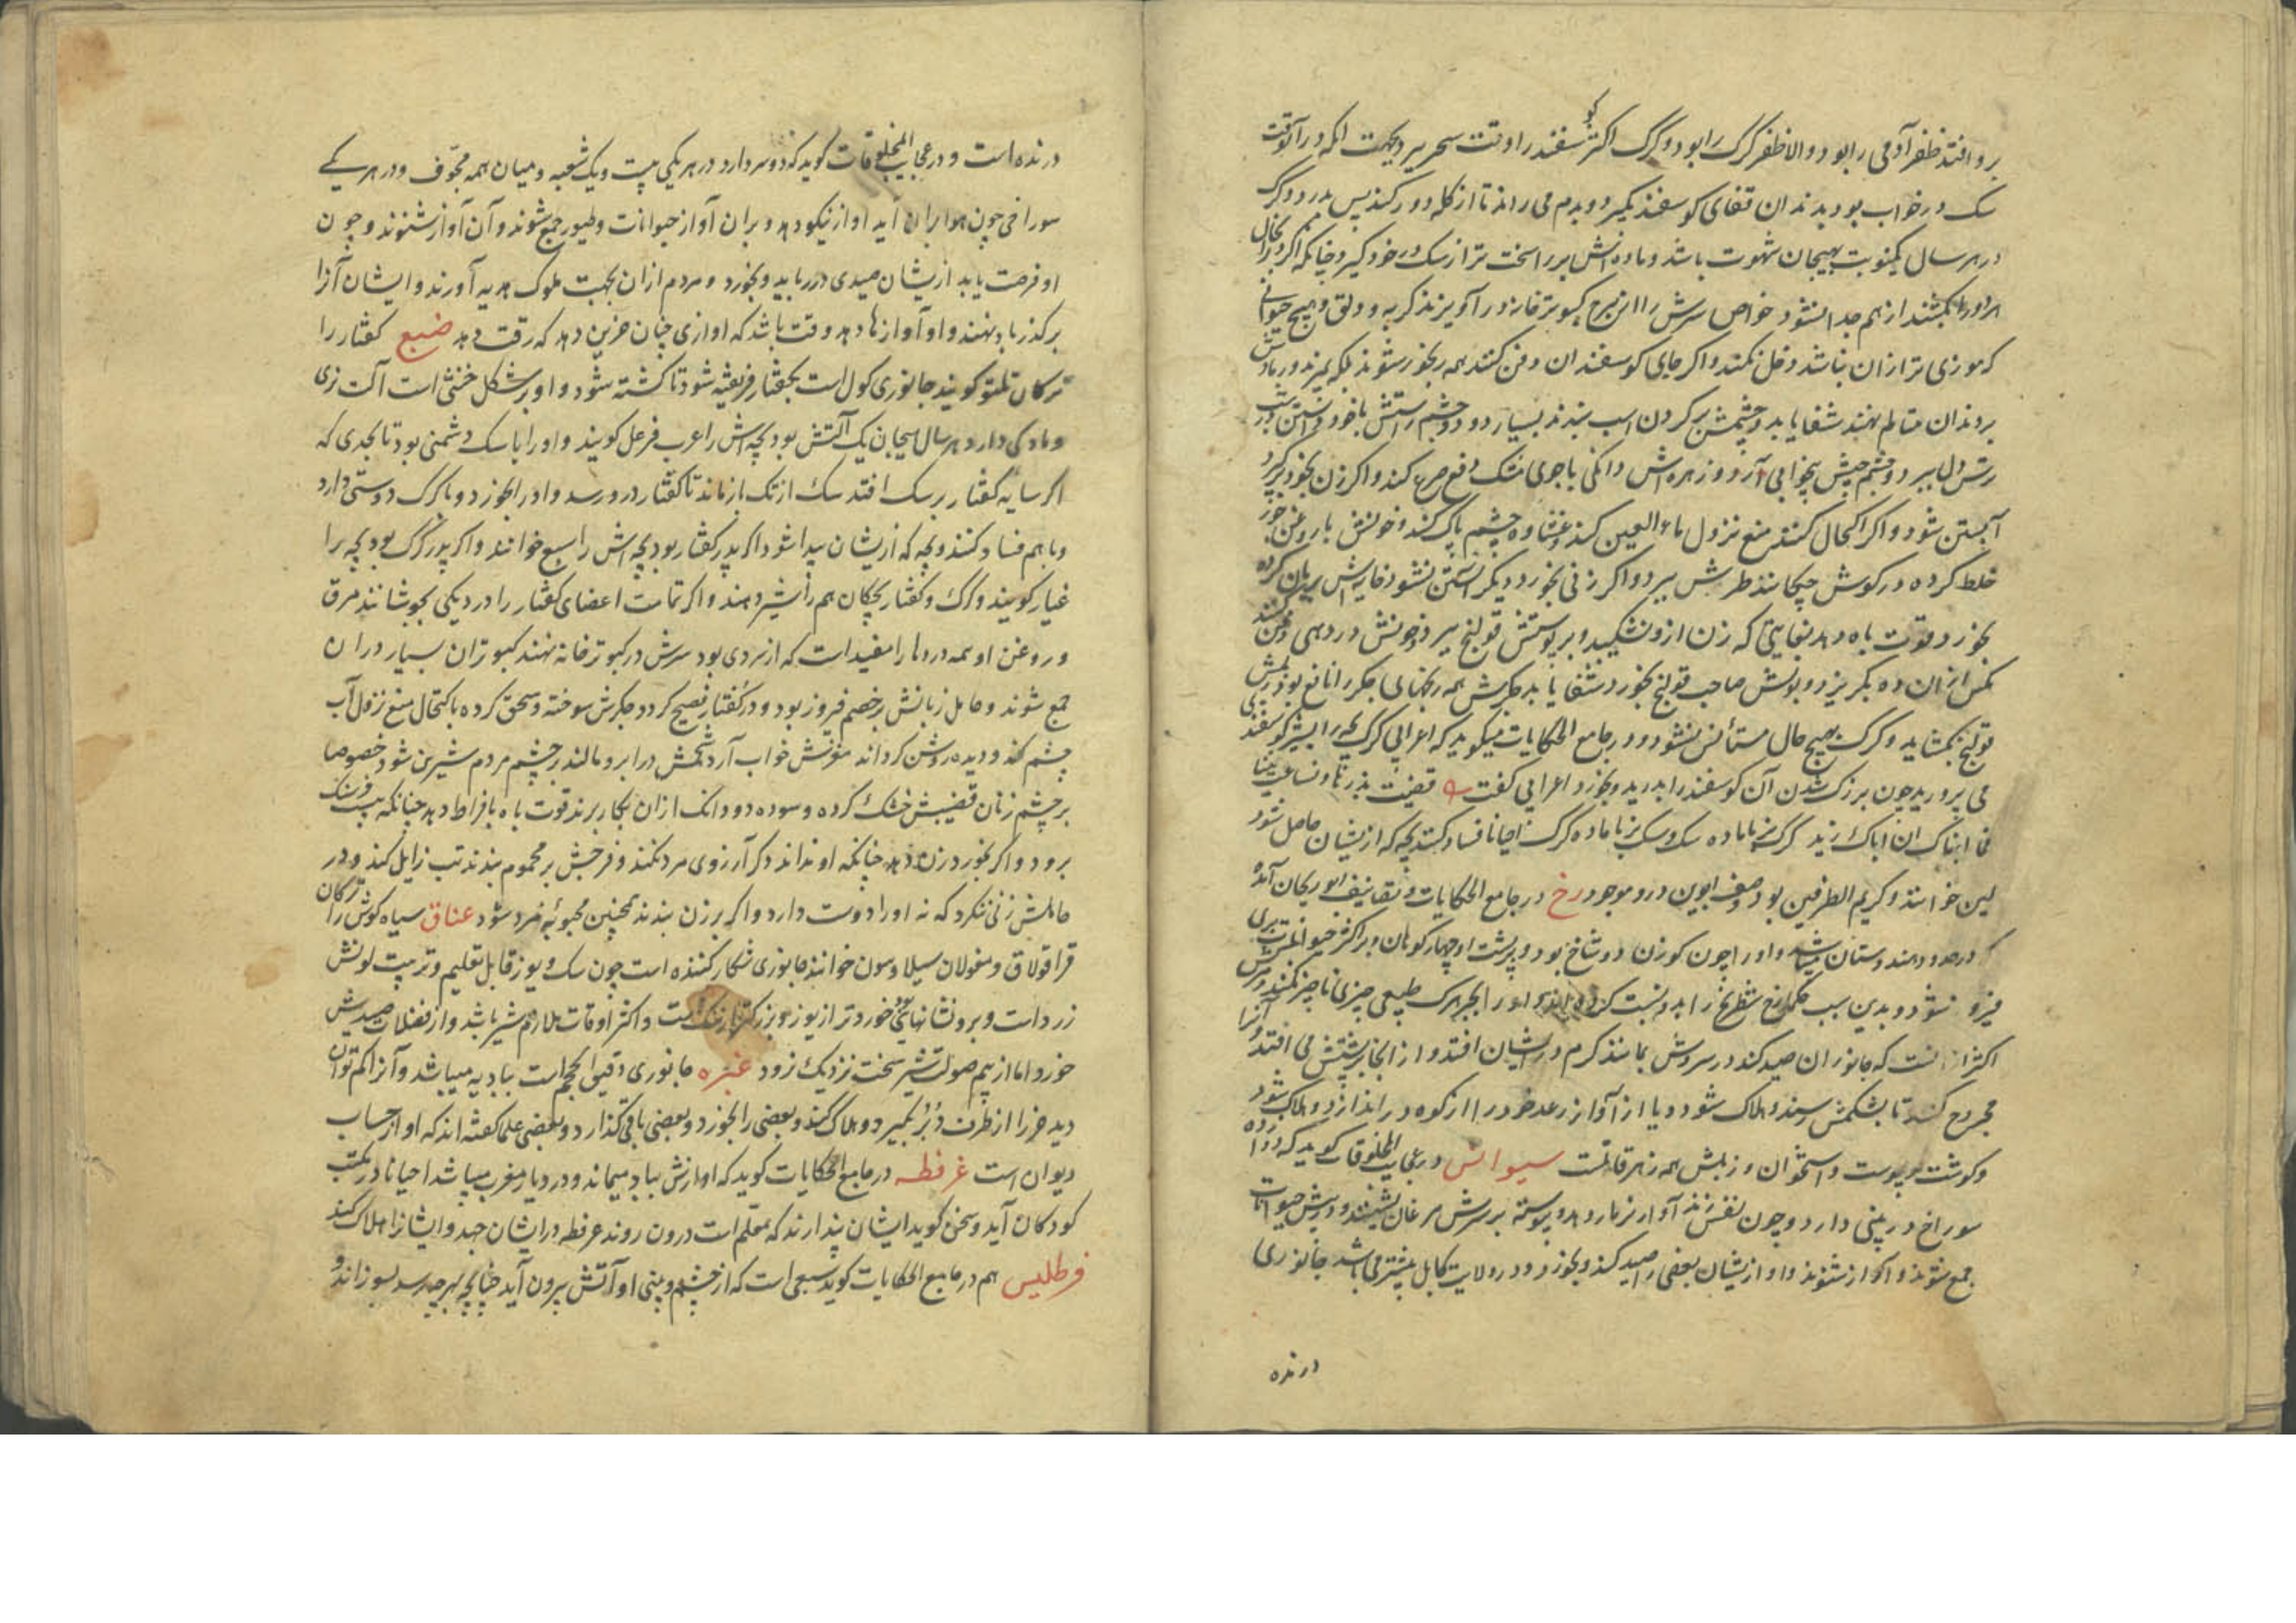 برو افتد ظفر آدمی را بود و الا ظفر کرک را بود و کرک اکثر کوسفند را وقت سحر برد بجهت انکه در آنوقت
سک در خواب بود بدندان قفای کوسفند بکیرد و بدم می راند تا از کله دور کند پس بدرد و کرک
در هر سال یکنوبت بهیجان شهوت باشد و ماده اش بر را سخت تر از سک در خود کیرد چنانکه اکر در انحال
هر دو را بکشند از هم جدا نشود خواص سرش را از برج کبوترخانه در آویزند کربه و دلق و هیچ حیوانی
که موذی تر ازان نباشد دخل نکند و اکر جای کوسفندان دفن کنند همه رنجور شوند بلکه بمیرند
بر دندان متالم نهند شفا یابد و چشمش بر کردن اسب بندند بسیار دود و چشم راستش با خود داشتن
ترس دل ببرد و چشم چپش بیخوابی آرد و زهره اش دانکی با جوی مشک دفع صرع کند و اکر زن بخود برکیرد
آبستن شود و اکر اکتحال کنند منع نزول ماء العین کند و غشاوه چشم پاک کند و خونش با روغن جوز
خلط کرده در کوش چکانند طرش ببرد و اکر زنی بخورد دیکر آبستن نشود خایه اش بریان کرده
بخورد قوت باه دهد بغایتی که زن ازو نشکیبد و بر پوستش قولنج ببرد و خونش در دهی دفن کنند
مکس ازان ده بکریزد و بولش صاحب قولنج بخورد شفا یابد جکرش همه رنجهای جکر را نافع بود زبلش
قولنج بکشاید و کرک بهیچ حال مستأنس نشود و در جامع الحکایات میکوید که اعرابی کرک بچه را بشیر کوسفند
می پرورید چون بزرک شدن آن کوسفند را بدرید و بخورد اعرابی کفت
فما انباک ان اباک ذیب کرک نر با ماده سک و سک نر با ماده کرک احیانا فساد کنند بچه که از یشان حاصل شود
لین خوانند و کریم الطرفین بود وصف ابوین درو موجود رخ در جامع الحکایات و تصانیف ابو ریحان آمده
که در حدود هندوستان میباشد و او را چون کوزن دو شاخ بود و بر پشت او چهار کوهان و بر اکثر حیوانات
فیروز شود و بدین سبب حکما رخ شطرنج را بدو نسبت کرده اند طبیعی چیزی ناچیز نکند
اکثر آنست که جانوران صید کند در سروش بمانند کرم در ایشان افتد و از انجا بر پشتش می افتد و آنرا
مجروح کند تا بشکمش رسد و هلاک شود و یا از آواز رعد خود را از کوه در اندازد و هلاک شود
و کوشت و پوست و استخوان و زبلش همه زهر قاتلست سیوانس در عجایب المخلوقات کوید که دوازده
سوراخ در بینی دارد و چون نفس زند آواز مزمار دهد و پیوسته بر سرش مرغان نشینند و در پیش حیوانات
جمع شوند و آواز شنوند و او از یشان بعضی را صید کند و بخورد و در ولایت کابل بیشتر می باشد جانوری
درنده
درنده است و در عجایب المخلوقات کوید که دو سر دارد در هر یکی بیست و یک شعبه و میان همه مجوف و در هر یکی
سوراخی چون هوا بران آید اواز نیکو دهد و بران آواز حیوانات و طیور جمع شوند و آن آواز شنوند و چون
او فرصت یابد از یشان صیدی در رباید و بخورد و مردم ازان بجهت ملوک هدیه آورند و ایشان آنرا
بر کذر باد نهند و او آوازها دهد وقت باشد که اوازی چنان حزین دهد که رقت دهد ضبع کفتار را
ترکان تلتو کویند جانوری کول است بکفتار فریفته شود تا کشته شود و او بر شکل خنثی است آلت نری
و مادکی دارد هر سال بهیجان یک آلتش بود بچه اش را عرب فرعل کویند و او را با سک دشمنی بود تا بحدی که
اکر سایه کفتار بر سک افتد سک از تک باز ماند تا کفتار درو رسد و او را بخورد و با کرک دوستی دارد
و با هم فساد کنند و بچه که از یشان پیدا شود اکر پدر کفتار بود بچه اش را سبع خوانند و اکر پدر کرک بود بچه را
غبار کویند و کرک و کفتار بچکان هم را شیر دهند و اکر تمامت اعضای کفتار را در دیکی بجوشانند مرق
و روغن او همه دردها را مفید است که از سردی بود سرش در کبوترخانه نهند کبوتران بسیار دران
جمع شوند و حامل زبانش بر خصم فیروز بود و در کفتار فصیح کردد جکرش سوخته و سحق کرده باکتحال منع نزول آب
چشم کند و دیده روشن کرداند مغزش خواب آرد شحمش در ابرو مالند در چشم مردم شیرین شود خصوصا
بر چشم زنان قضیبش خشک کرده و سوده دو دانک ازان بکار برند قوت باه بافراط دهد چنانکه بیست فرسنک
برود و اکر بخورد زن دهد چنانکه او نداند دکر آرزوی مرد نکند و فرجش بر محموم بندند تب زایل کند و در
حاملش زنی ننکرد که نه او را دوست دارد و اکر بر زن بندند همچنین محبوبه مرد شود عناق سیاه کوش را ترکان
قراقولاق و مغولان سیلاوسون خوانند جانوری شکار کننده است چون سک و یوز قابل تعلیم و تربیت لونش
زرد است و برو نشانهای خوردتر از یوز و بزرکتر است و اکثر اوقات ملازم شیر باشد و از فضلات صیدش
خورد اما از بیم صولت شیر سخت نزدیک نرود عنزه جانوری دقیق الحجم است ببادیه میباشد و آنرا کم توان
دید خر را از طرف دبر بکیرد و هلاک کند و بعضی را بخورد و بعضی باقی کذارد و بعضی علما کفته اند که او از حساب
دیوان است غرفطه در جامع الحکایات کوید که اوازش بباد میماند و در دیار مغرب میباشد احیانا در مکتب
کودکان آید و سخن کوید ایشان پندارند که معلم است درون روند عرفطه در ایشان جهد و ایشانرا هلاک کند
فرطلیس هم در جامع الحکایات کوید سبعی است که از چشم و بینی او آتش بیرون آید چنانچه بهر چه رسد بسوزاند و